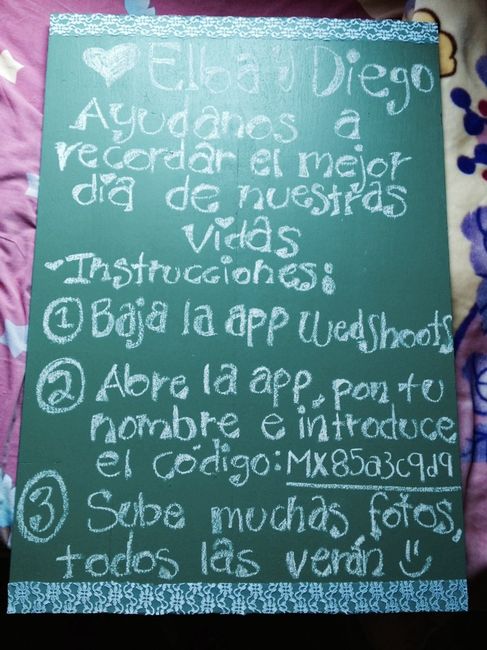 ♥ Elba y Diego
Ayudanos a
recordar el mejor
día de nuestras
vidas
♥Instrucciones:
① Baja la app Wedshoots
② Abre la app, pon tu
nombre e introduce
el código: MX85a3c9d9
③ Sube muchas fotos,
todos las verán ☺